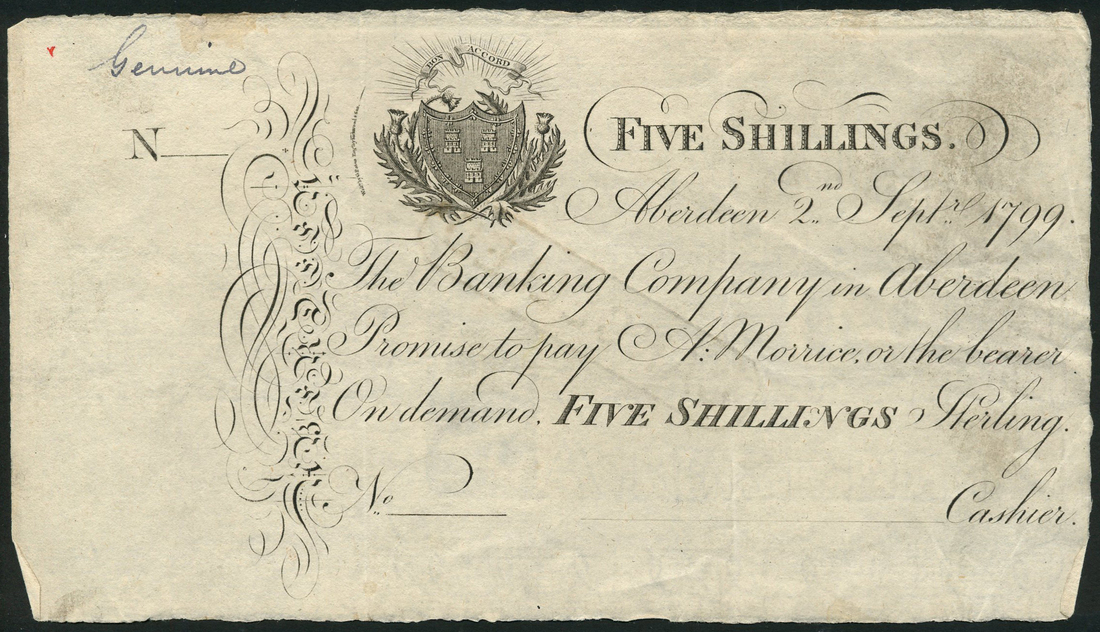 Genuine
BON ACCORD
N
FIVE SHILLINGS.
Aberdeen 2nd. Septr. 1799.
The Banking Company in Aberdeen
Promise to pay A: Morrice, or the bearer
On demand, FIVE SHILLINGS Sterling.
No.
Cashier.